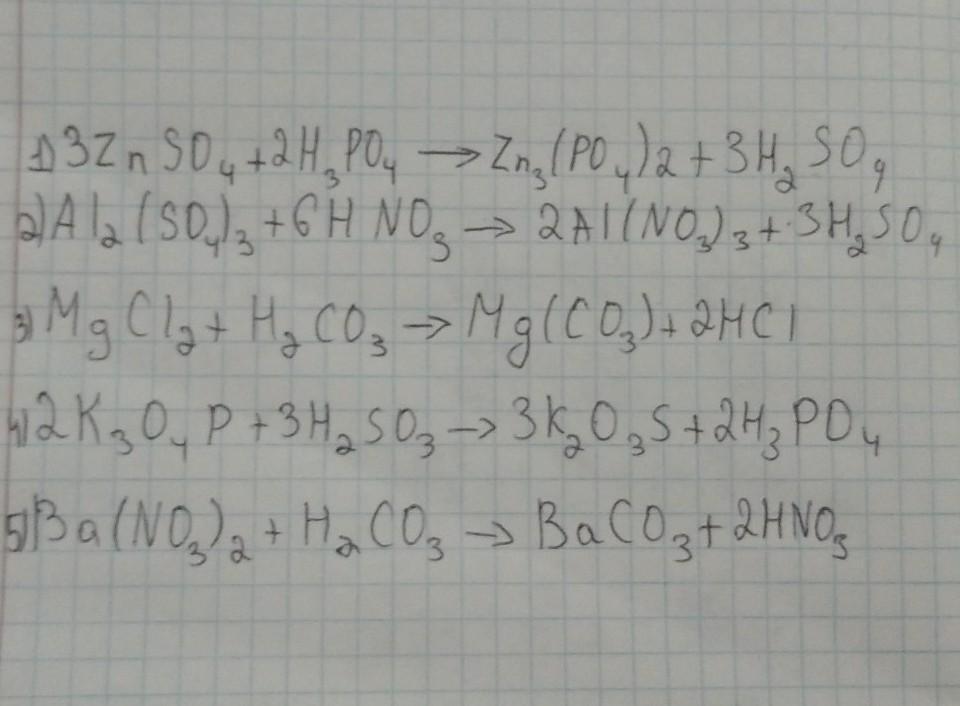 1) 3ZnSO₄ + 2H₃PO₄ → Zn₃(PO₄)2 + 3H₂SO₄
2) Al₂(SO₄)₃ + 6HNO₃ → 2Al(NO₃)₃ + 3H₂SO₄
3) MgCl₂ + H₂CO₃ → Mg(CO₃) + 2HCl
4) 2K₃O₄P + 3H₂SO₃ → 3K₂O₃S + 2H₃PO₄
5) Ba(NO₃)₂ + H₂CO₃ → BaCO₃ + 2HNO₃